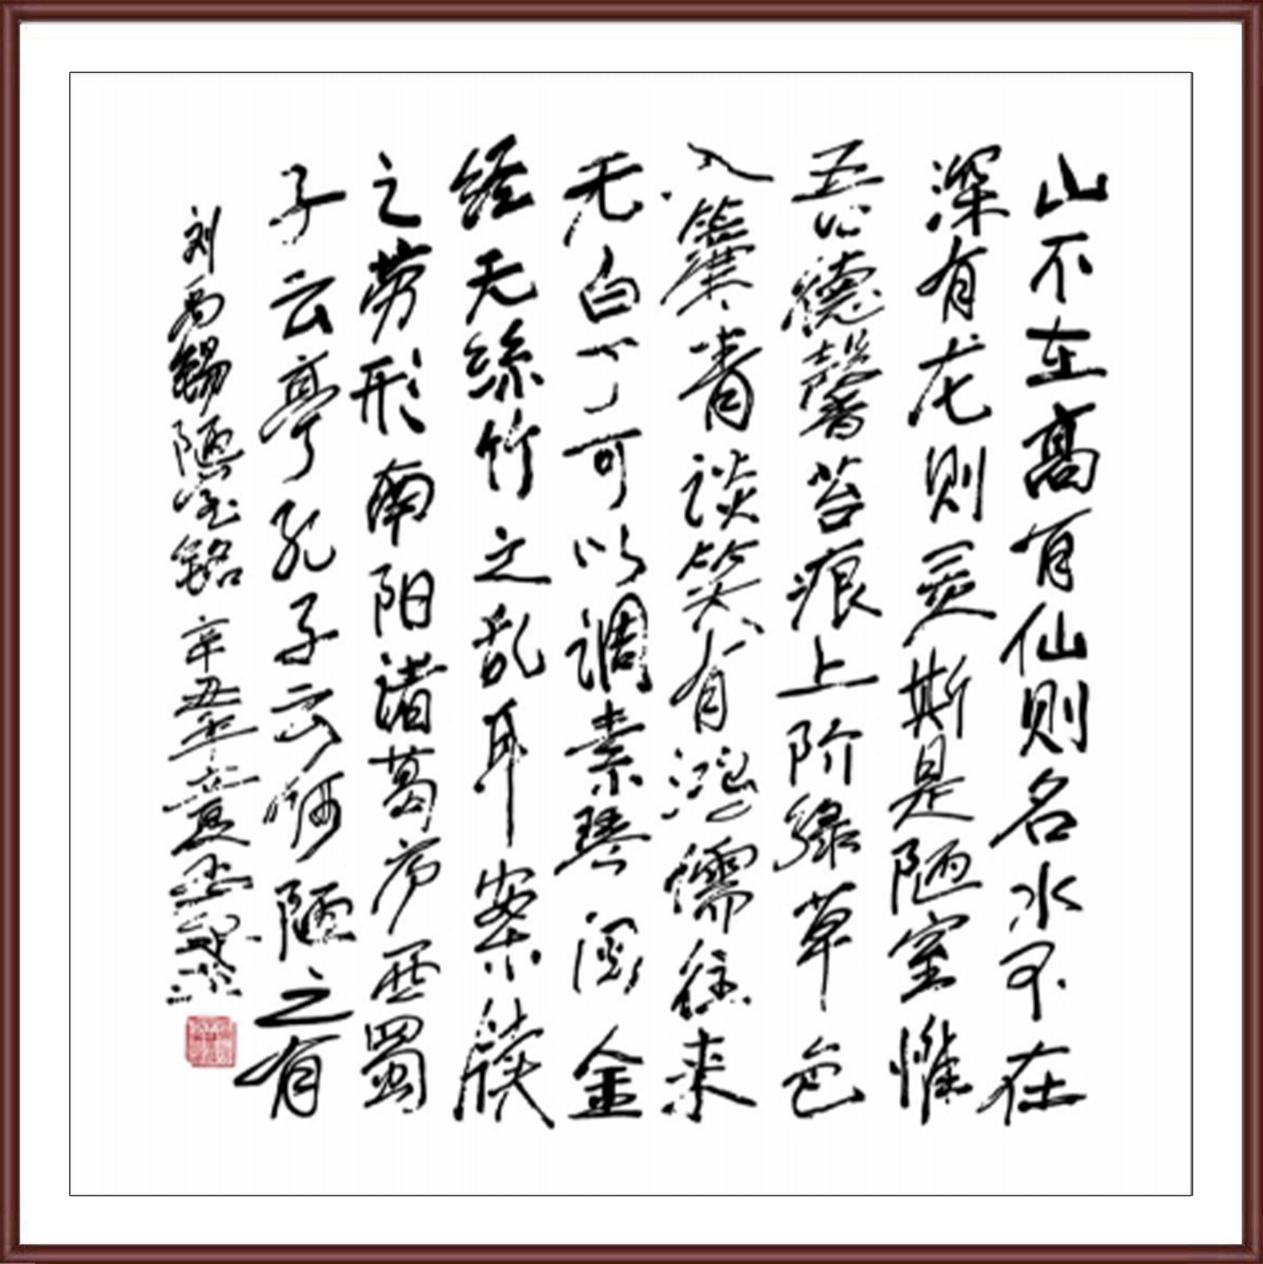 山不在高有仙则名水不在
深有龙则灵斯是陋室惟
吾德馨苔痕上阶绿草色
入簾青谈笑有鸿儒往来
无白丁可以调素琴阅金
经无絲竹之乱耳案牍
之劳形南阳诸葛庐西蜀
子云亭孔子云何陋之有
刘禹锡陋室铭辛丑年立夏